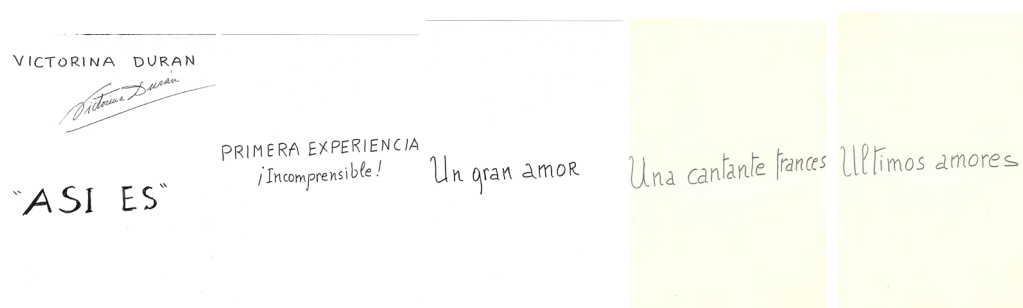 VICTORINA DURAN
Victorina Durán
"ASI ES"
PRIMERA EXPERIENCIA
¡Incomprensible!
Un gran amor
Una cantante frances
Ultimos amores